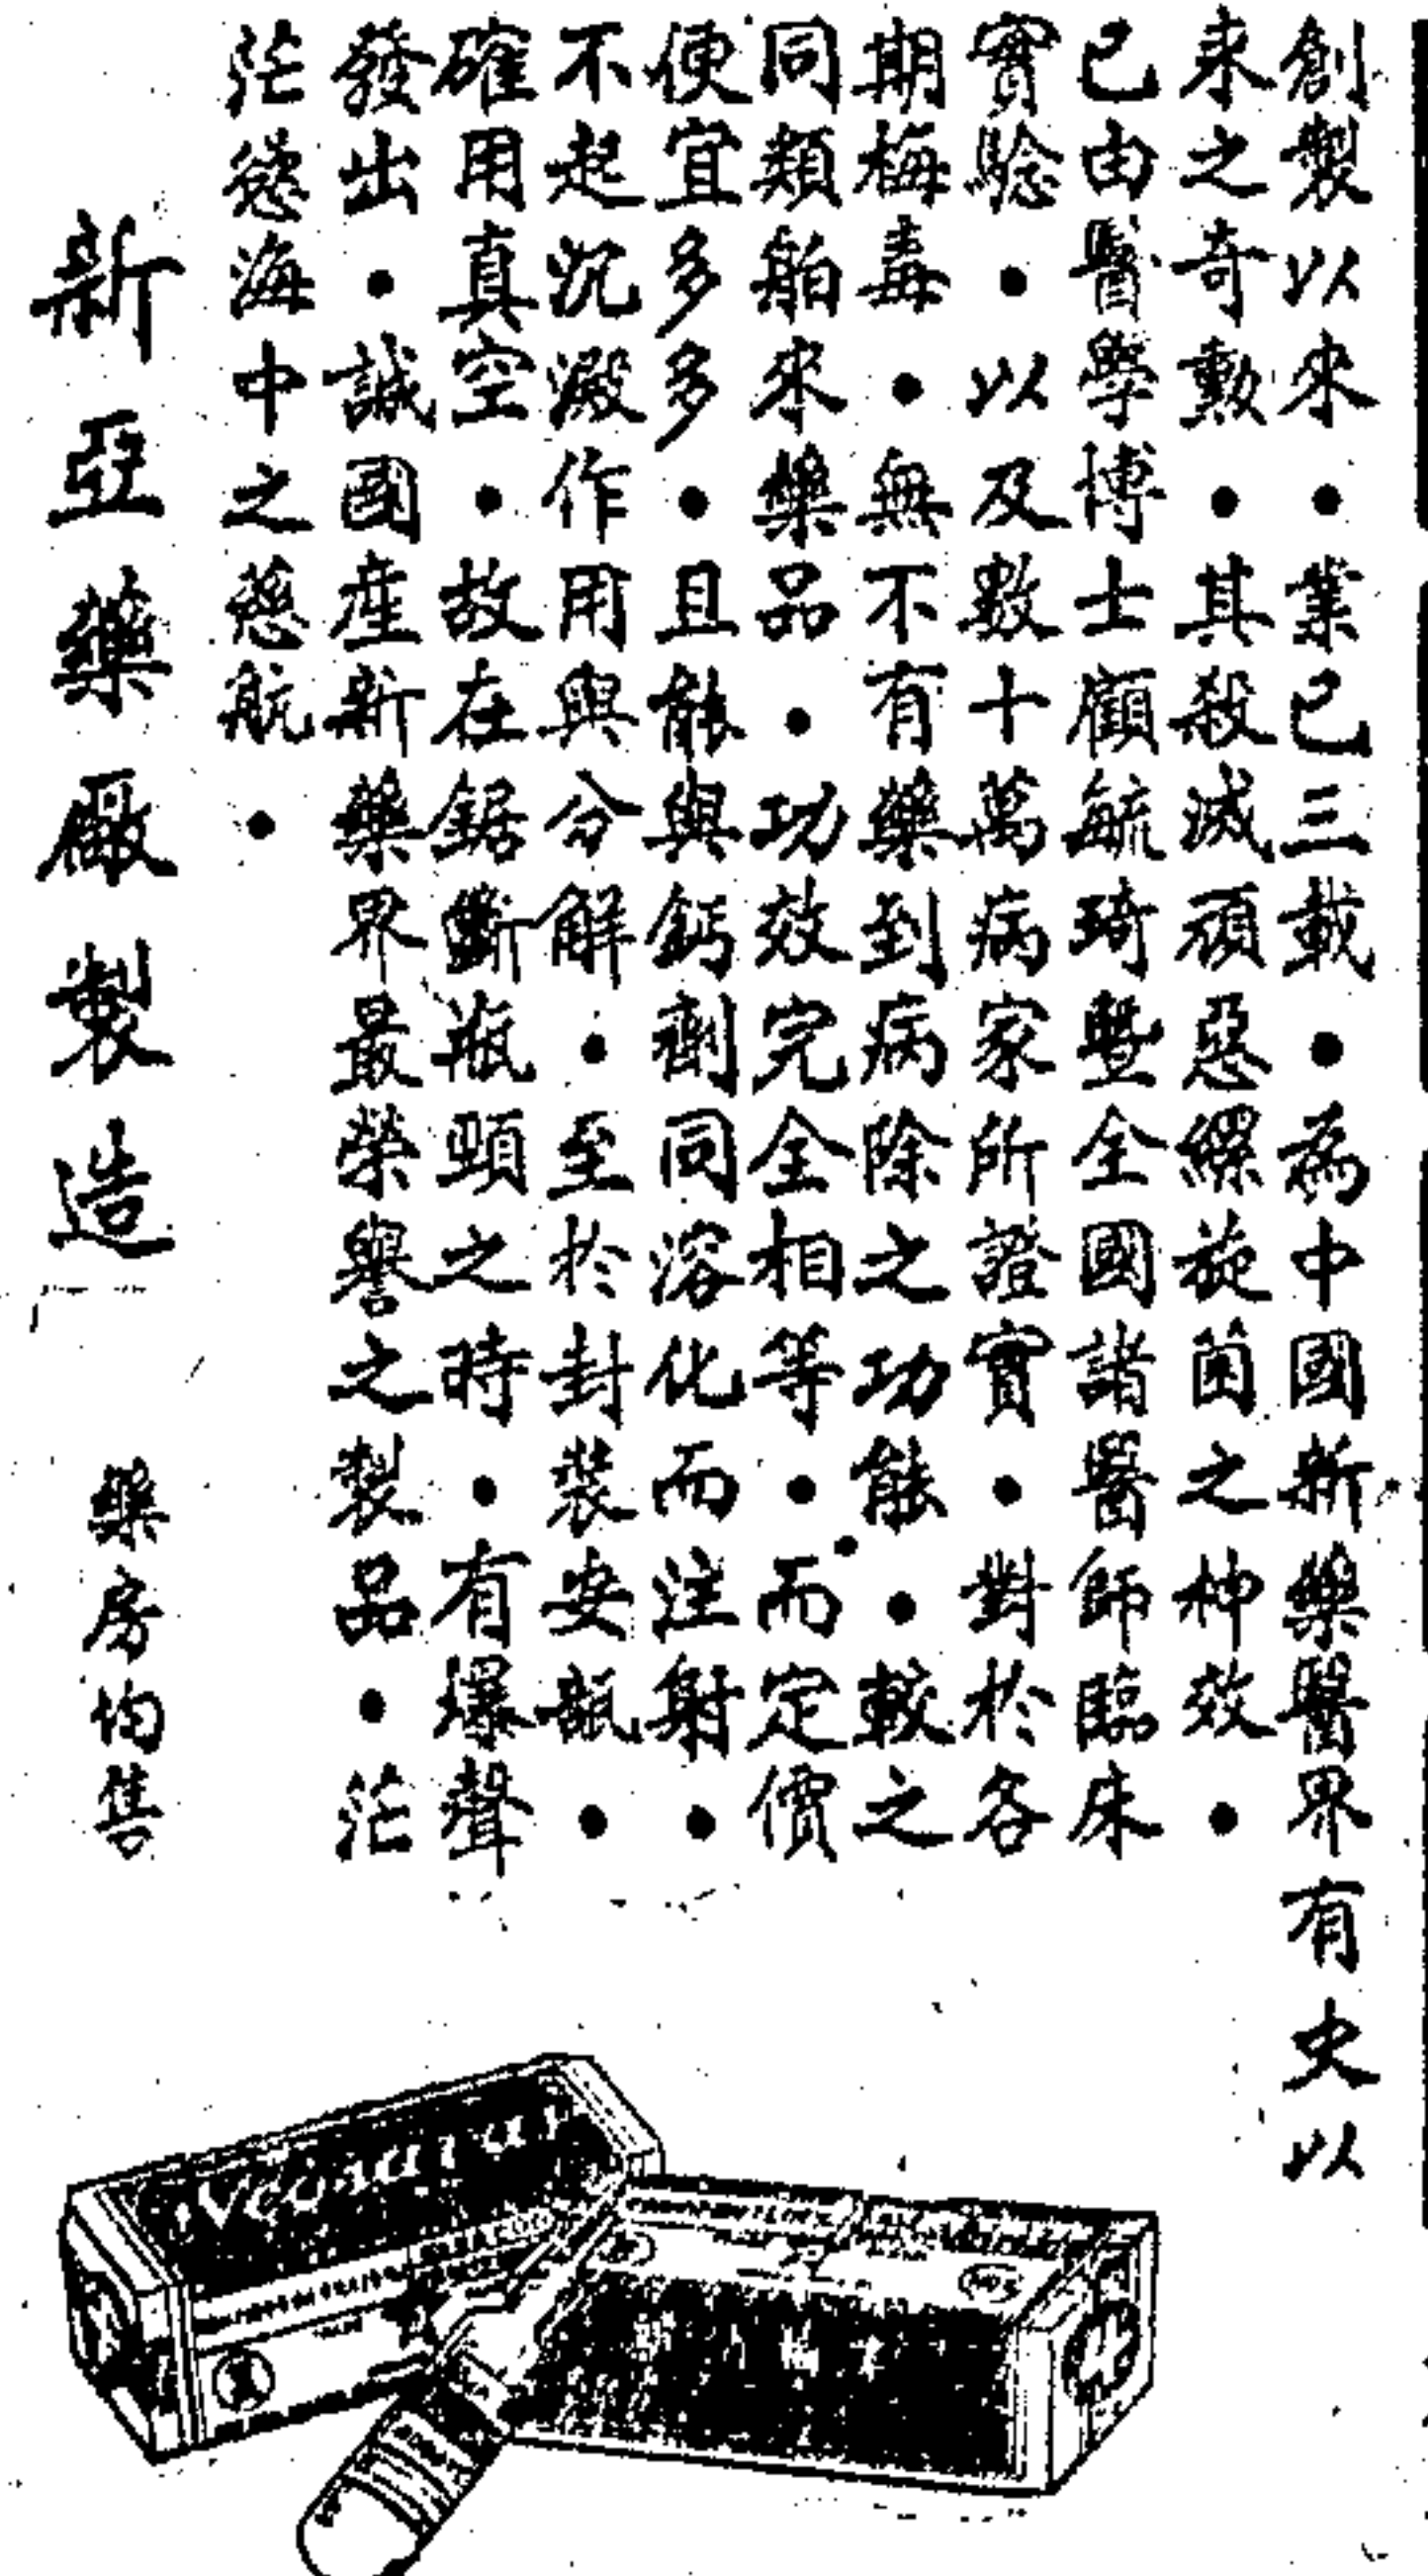 創製以來・業已三載・為中國新藥醫界有史以
來之奇勳・其殺滅頑惡螺旋菌之神效・
已由醫學博士顧毓琦暨全國諸醫師臨床
實驗・以及數十萬病家所證實・對於各
期梅毒・無不有藥到病除之功能・較之
同類舶來藥品・功效完全相等・而定價
便宜多多・且能與鈣劑同溶化而注射・
不起沉澱作用與分解・至於封裝安瓿
確用真空・故在鋸斷瓶頸之時・有爆聲
發出・誠國產新藥界最榮譽之製品・茫
茫慾海中之慈航・
新亞藥廠製造
藥房均售